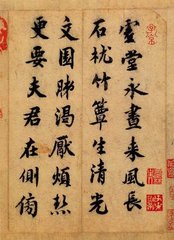 虛堂永晝来風長
石枕竹簟生清光
文園肺渴厭煩熱
更要夫君在側傍